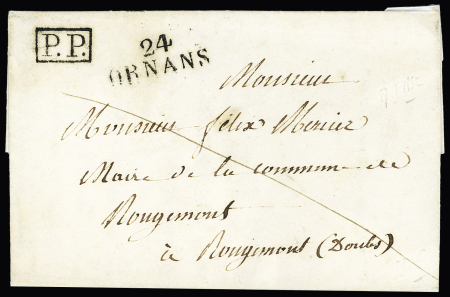 P.P.
24
ORNANS
Monsieur
Monsieur félix Mercier
Maire de la commune de
Rougemont
à Rougemont (Doubs)